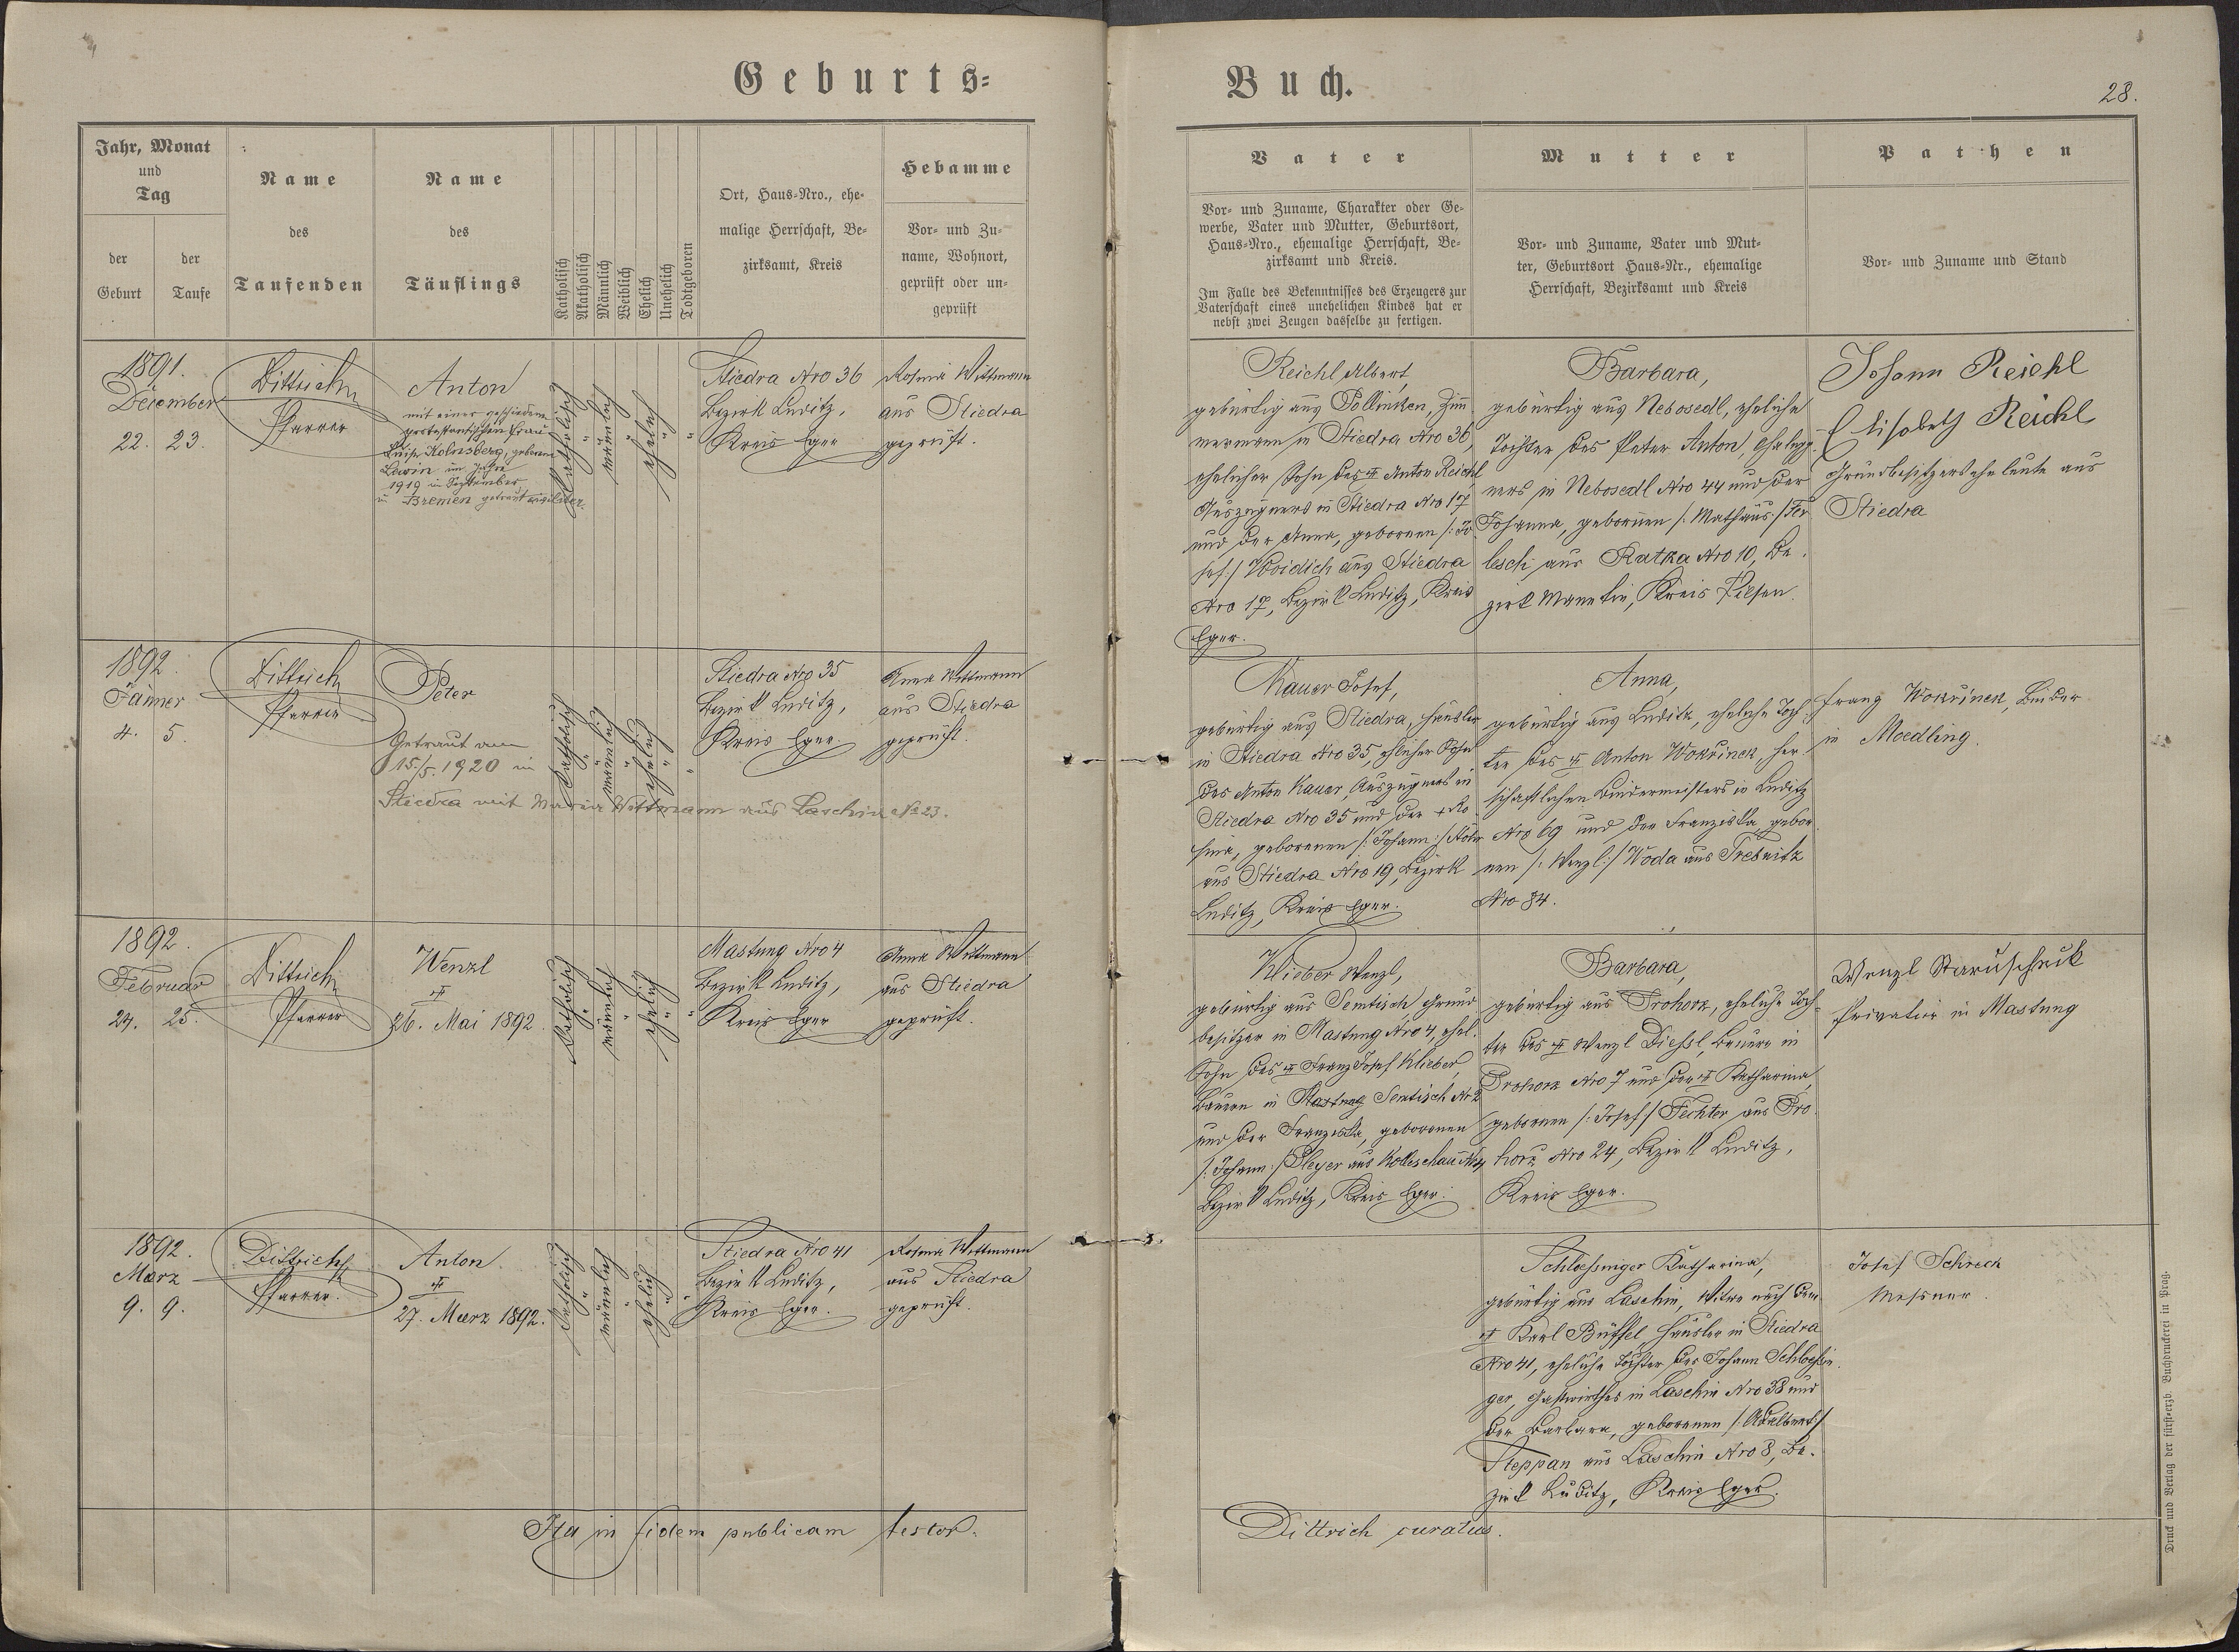 Geburts-
Buch.
28.
Jahr, Monat
und
Tag
der
Geburt
der
Taufe
Name
des
Taufenden
Name
des
Täuflings
Katholisch
Akatholisch
Männlich
Weiblich
Ehelich
Unehelich
Todtgeboren
Ort, Haus-Nro., ehe-
malige Herrschaft, Be-
zirksamt, Kreis
Hebamme
Vor- und Zu-
name, Wohnort,
geprüft oder un-
geprüft
Vater
Vor- und Zuname, Charakter oder Ge-
werbe, Vater und Mutter, Geburtsort,
Haus-Nro., ehemalige Herrschaft, Be-
zirksamt und Kreis.
Im Falle des Bekenntnisses des Erzeugers zur
Vaterschaft eines unehelichen Kindes hat er
nebst zwei Zeugen dasselbe zu fertigen.
Mutter
Vor- und Zuname, Vater und Mut-
ter, Geburtsort Haus-Nr., ehemalige
Herrschaft, Bezirksamt und Kreis
Pathen
Vor- und Zuname und Stand
1891.
December
22. 23.
Dittrich
Pfarrer
Anton
mit einer geschiedenen
protestantischen Frau
Luise Kolmsberg, geborene
Lewin im Jahre
1919 im September
in Bremen getraut
Katholisch
männlich
ehelich
Stiedra Nro 36
Bezirk Luditz,
Kreis Eger
Rosina Wittmann
aus Stiedra
geprüft.
Reichl Albert,
gebürtig aus Pollinken, Zim-
mermann in Stiedra Nro 36,
ehelicher Sohn des Anton Reichl
Auszügners in Stiedra Nro 17
und der Anna, geborenen /: Jo-
sef :/ Woidich aus Stiedra
Nro 17, Bezirk Luditz, Kreis
Eger.
Barbara,
gebürtig aus Nebosedl, eheliche
Tochter des Peter Anton,
ners in Nebosedl Nro 44 und der
Johanna, geborenen /: Mathäus :/ Fer-
lesch aus Ratka Nro 10, Be-
zirk Manetin, Kreis Pilsen.
Johann Reichl
Elisabeth Reichl
Grundbesitzerseheleute aus
Stiedra
1892.
Jänner
4. 5.
Dittrich
Pfarrer
Peter
Getraut am
15./5. 1920 in
Stiedra mit Maria Wittmann aus Laschin No 23.
Katholisch
männlich
ehelich
Stiedra Nro 35
Bezirk Luditz,
Kreis Eger.
Anna Wittmann
aus Stiedra
geprüft.
Kauer Josef,
gebürtig aus Stiedra, Häusler
in Stiedra Nro 35, ehelicher Sohn
des Anton Kauer, Auszügners in
Stiedra Nro 35 und der + Ro-
sina, geborenen /: Johann :/
aus Stiedra Nro 19, Bezirk
Luditz, Kreis Eger.
Anna,
gebürtig aus Luditz, eheliche Toch-
ter des Anton Wokřinek, herr-
schaftlichen Bindermeisters in Luditz
Nro 69 und der Franziska, gebor-
nen /: Wenzl :/ Woda aus Trebnitz
Nro 34.
Franz Wokřinek, Binder
in Moedling.
1892.
Februar
24. 25.
Dittrich
Pfarrer
Wenzl
26. Mai 1892.
Katholisch
männlich
ehelich
Mastung Nro 4
Bezirk Luditz,
Kreis Eger
Anna Wittmann
aus Stiedra
geprüft.
Klieber Wenzl,
gebürtig aus Semtisch, Grund-
besitzer in Mastung Nro 4, ehel.
Sohn des Franz Josef Klieber,
Bauern in Mastung Semtisch Nr 2
und der Franziska, geborenen
/: Johann :/ Pleyer aus Kolleschau
Bezirk Luditz, Kreis Eger.
Barbara,
gebürtig aus Prohorz, eheliche Toch-
ter des Wenzl Diessl, Bauers in
Prohorz Nro 7 und der Katharina,
geborenen /: Josef :/ Fechter aus Pro-
horz Nro 24, Bezirk Luditz,
Kreis Eger.
Wenzl Staruschnik
Privatier in Mastung
1892.
Marz
9. 9.
Dittrich
Pfarrer.
Anton.
27. Maerz 1892.
Katholisch
männlich
ehelich
Stiedra Nro 41
Bezirk Luditz,
Kreis Eger.
Rosina Wittmann
aus Stiedra
geprüft.
Schloessinger Katharina,
gebürtig aus Laschin, Witwe nach dem
Karl Büssel, Häusler in Stiedra
Nro 41, eheliche Tochter des Johann Schloessin-
ger, Gastwirthes in Laschin Nro 38 und
der Barbara, geborenen /: Adalbert :/
Steppan aus Laschin Nro 8, Be-
zirk Luditz, Kreis Eger.
Josef Schreck
Messner.
Ita in fidem publicam testor.
Dittrich curatus.
Druck und Verlag der fürst-erzb. Buchdruckerei in Prag.